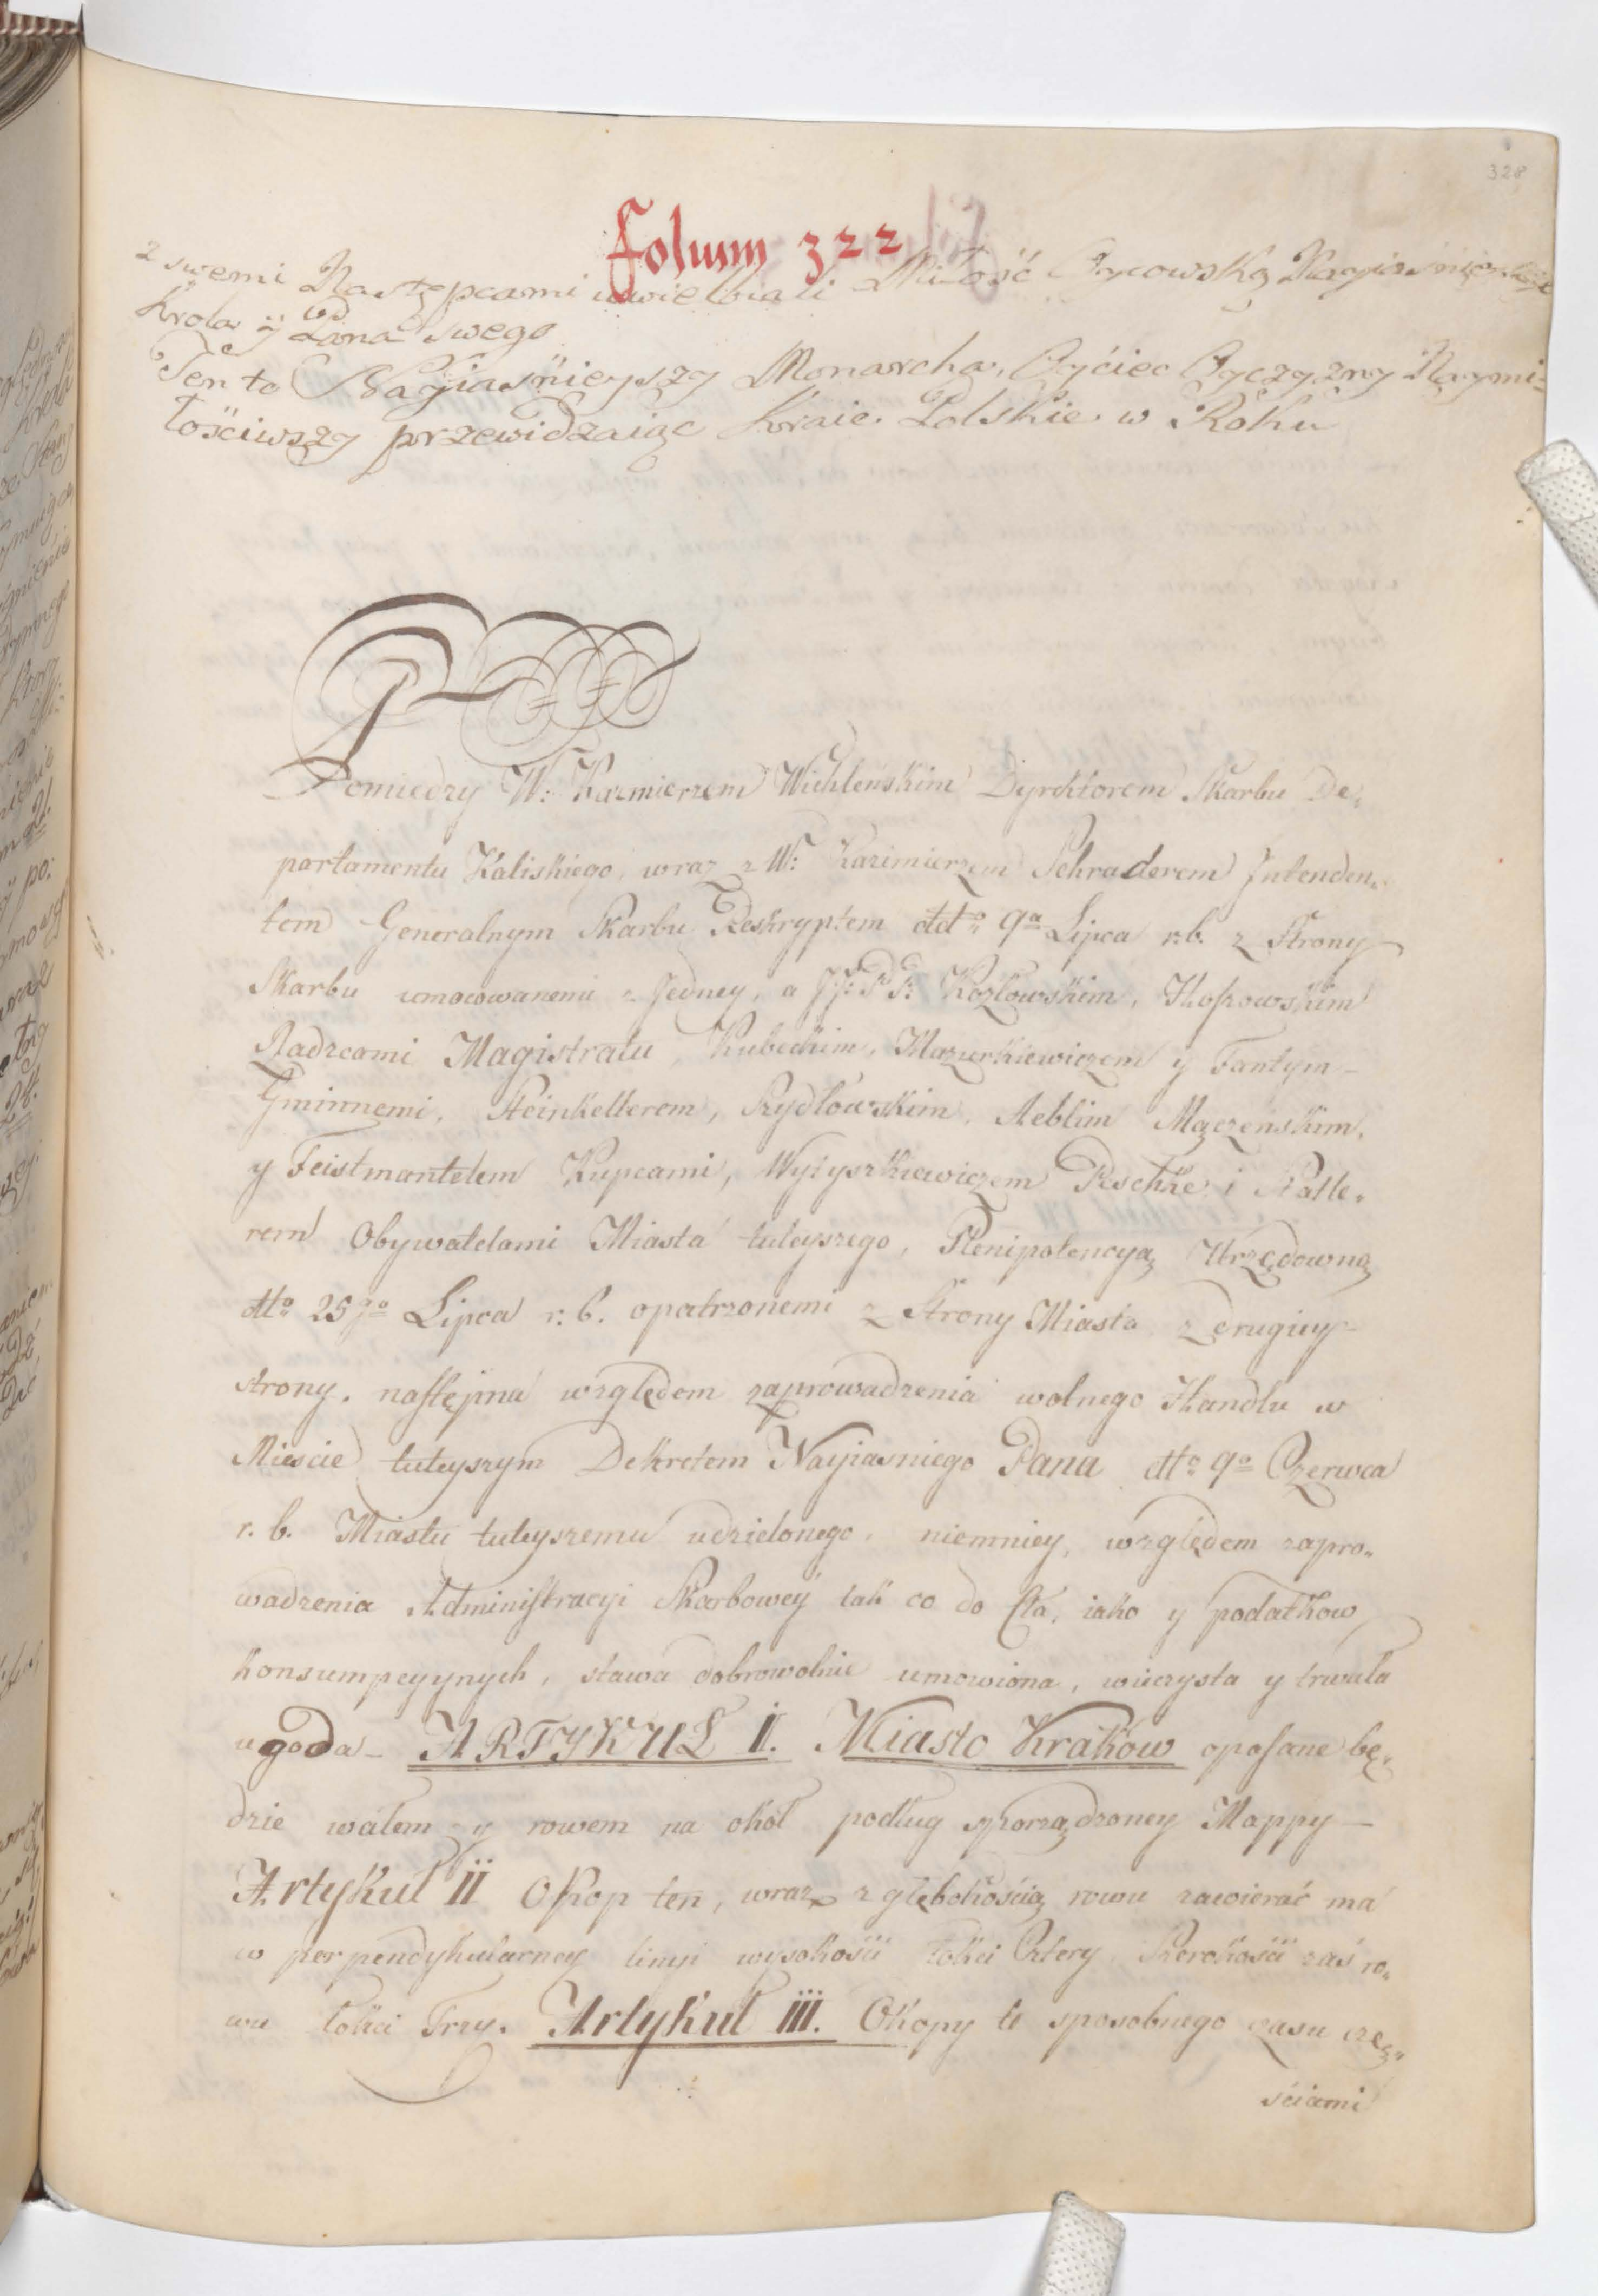 328
Folium 322
z swemi Następcami uwielbiali Miłość Oycowską Nayiaśnieyszego
Krola y Pana swego
Ten to Nayiaśnieyszy Monarcha, Oyćiec Oyczyzny Naymi-
łościwszy przewidzaiąc Kraie Polskie w Roku
Pomiedzy W: Kazmierzem Wichlenskim Dyrektorem Skarbu De„
partamentu Kaliskiego, wraz z W: Kazimierzem Schraderem Intenden„
tem Generalnym Skarbu Reskryptem ddto 9a Lipca r.b. z Strony
Skarbu umocowanemi z Jedney, a JJ: PP: Kozłowskim, Hoszowskim
Radzcami Magistratu, Kubeckim, Mazurkiewiczem y Fantym
Gminnemi, Steinkellerem, Szydłowskim, Aeblim Mączenskim,
y Feistmantelem Kupcami, Wytyszkiewiczem Peschke i Ratle„
rem Obywatelami Miasta tuteyszego, Plenipotencyą Urzędowną
dto 25go Lipca r: b. opatrzonemi z Strony Miasta z drugiey
strony, nastęjna względem zaprowadzenia wolnego Handlu w
Miescie tuteyszym Dekretem Nayiasniego Pana dto 9o Czerwca
r. b. Miastu tuteyszemu udzielonego, niemniey, względem zapro„
wadzenia Administracyi Skarbowey tak co do Cła, iako y podatkow
konsumpcyynych, stawa dobrowolnie umowiona, wieczysta y trwała
ugoda – ARTYKUŁ I. Miasto Krakow opasane bę„
dzie wałem y rowem na okoł podług sporządzoney Mappy –
Artykuł II Okop ten, wraz z głębokością rowu zawierać ma
w perpendykularney linyi wysokości łokci Cztery Szerokości zaś ro„
wu łokci Trzy. Artykuł III. Okopy te sposobnego czasu czę„
ściami